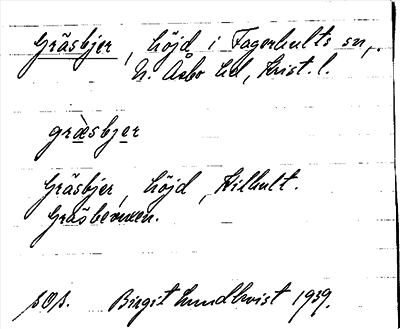 Gräsbjer, höjd i Fagerhults sn,
N. Åsbo hd, Krist. l.
græ̀sbjer
Gräsbjer, höjd, Kilhult.
Birgit Lundkvist 1939.